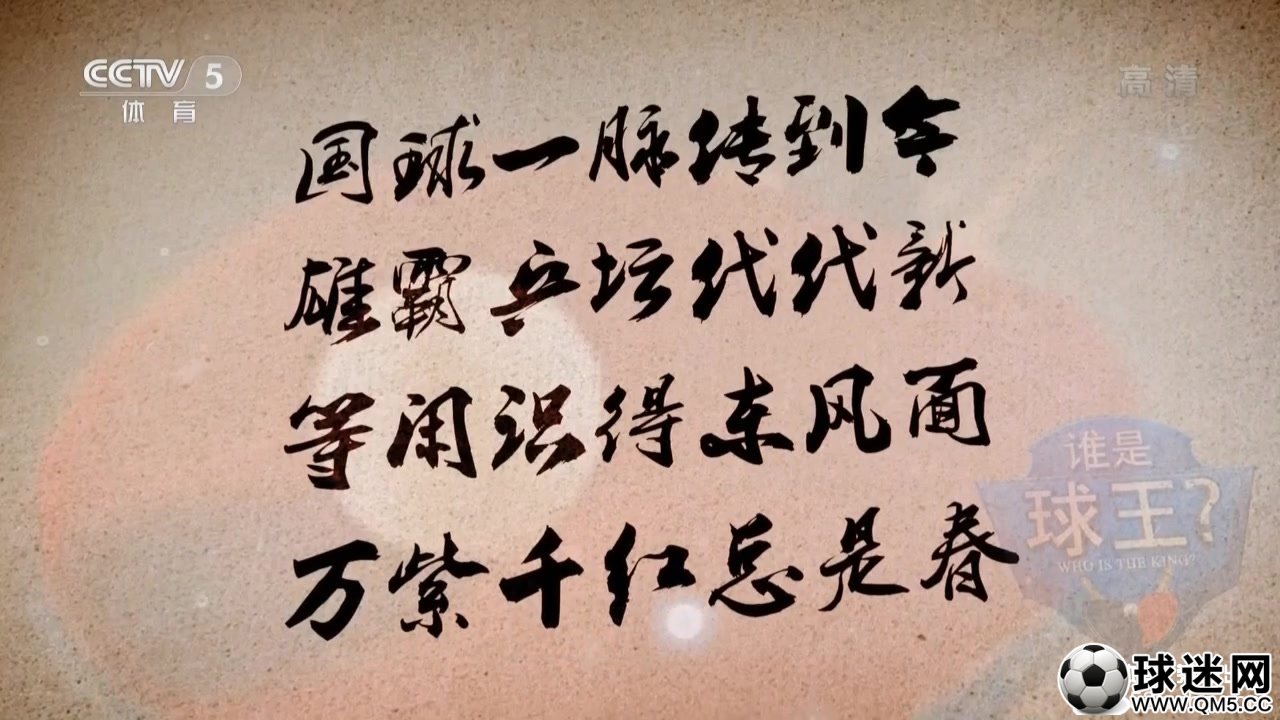 CCTV 5
体育
高清
国球一脉传到今
雄霸乒坛代代新
等闲识得东风面
万紫千红总是春
谁是
球王?
WHO IS THE KING?
球迷网
WWW.QM5.CC